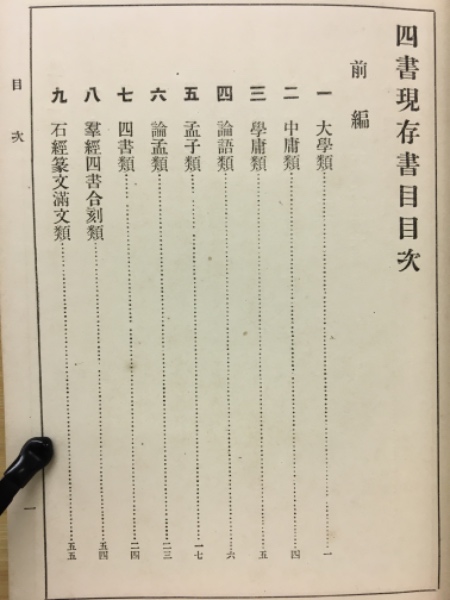 四書現存書目目次
前編
一 大學類 一
二 中庸類 四
三 學庸類 五
四 論語類 六
五 孟子類 一七
六 論孟類 二三
七 四書類 二四
八 羣經四書合刻類 五四
九 石經篆文滿文類 五五
目次 一